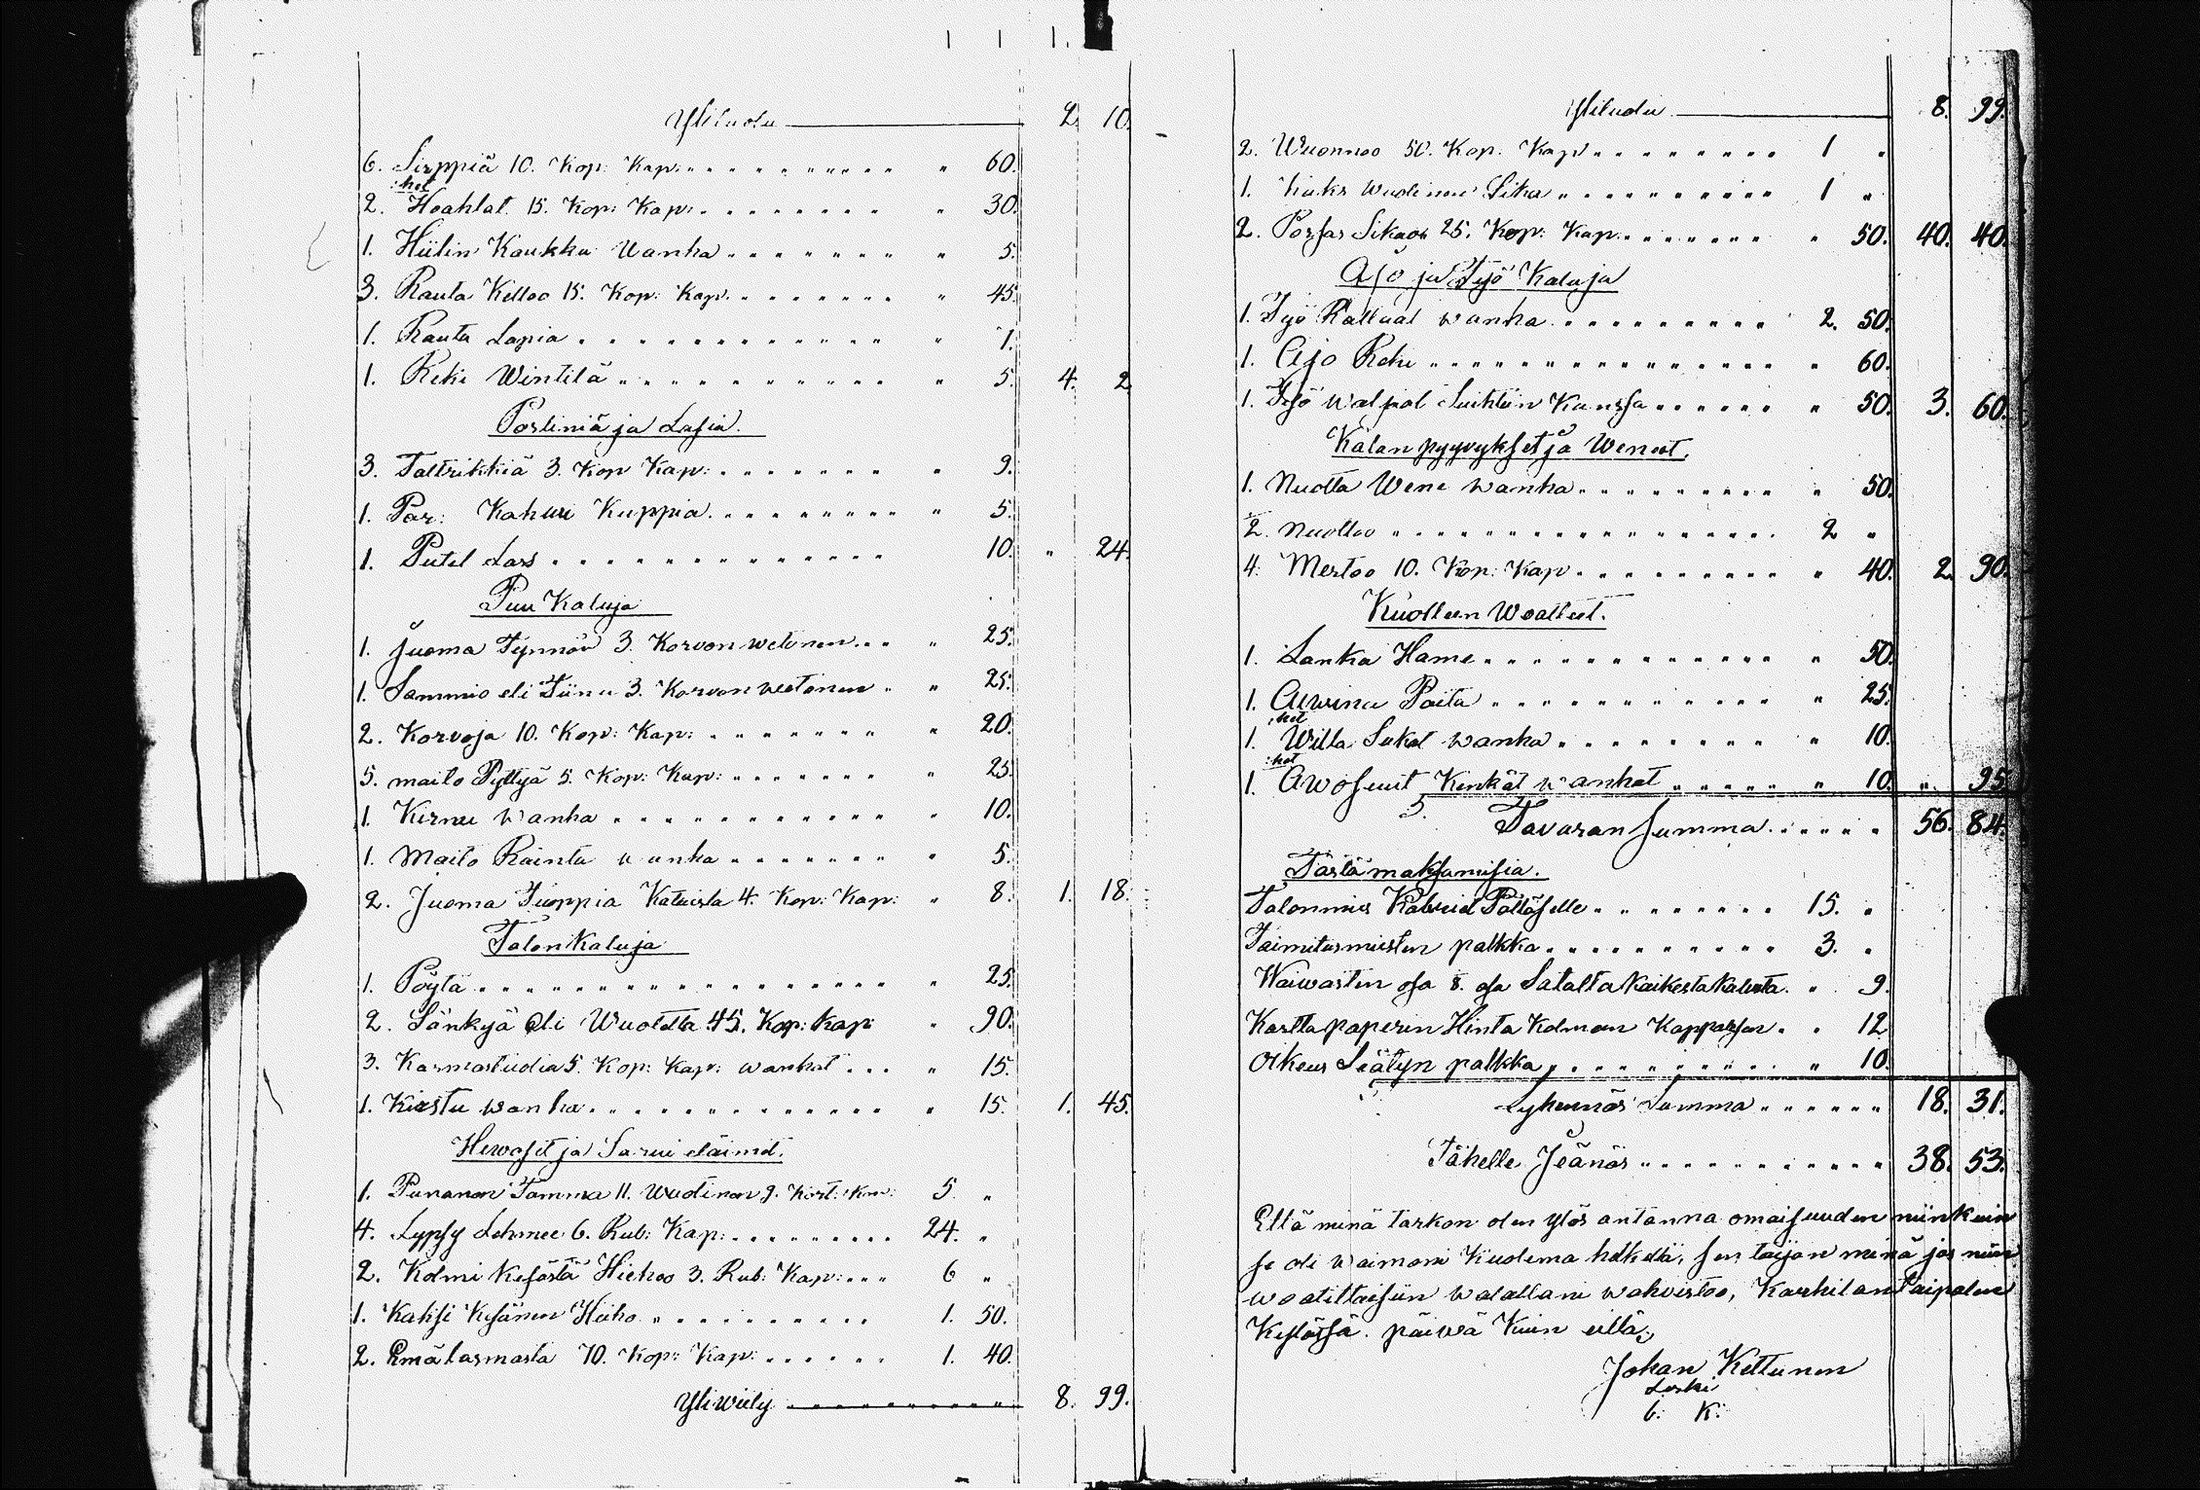 Ylituotu 2. 10.
6. Sirppiä 10. Kop: Kap. " 60.
:ket
2. Hoahlat. 15. Kop: Kap. " 30.
1. Hiilin Koukku Wanha " 5.
3. Rauta Kelloo 15. Kop: Kap. " 45.
1. Rauta Lapia " 1.
1. Reki Wintilä " 5. 4. 2
Posliniä ja Lasia.
3. Taltrikkiä 3. Kop Kap: " 9.
1. Par: Kahwi Kuppia " 5.
1. Putel Lasi 10. " 24.
Puu Kaluja
1. Juoma Tynnör 3. Korvon wetonen " 25.
1. Sammio eli Tiinu 3. Korvon wetonen " 25.
2. Korvoja 10. Kop: Kap: " 20.
5. maito Pyttyä 5. Kop: Kap: " 25.
1. Kirnu Wanha " 10.
1. Maito Rainta wanha " 5.
2. Juoma Tuoppia Kataista 4. Kop: Kap: " 8. 1. 18.
Talon Kaluja
1. Pöytä " 25.
2. Sänkyä eli Wuodetta 45. Kop: Kap: " 90.
3. Karmastuolia 5. Kop: Kap: wanhat " 15.
1. Kirstu wanha " 15. 1. 45.
Hewoset ja Sarwi eläimet.
1. Punanen Tamma 11. Wuotinen 9. Kort: Kor: 5. "
4. Lypsy Lehmee 6. Rub: Kap: 24. "
2. Kolmi Kesästä Hiehoo 3. Rub: Kap: 6 "
1. Kaksi Kesänen Hieho 1. 50.
2. Emä lasmasta 70. Kop: Kap: 1. 40.
Yliwiety 8. 99.
Ylituotu 8. 99.
2. Wuonnoo 50. Kop: Kap. 1 "
1. Kaks Wuotinen Sika 1 "
2. Porsas Sikaa 25. Kop: Kap. " 50. 40. 40.
Ajo ja Työ Kaluja
1. Työ Rattaat wanha 2. 50.
1. Ajo Reki " 60.
1. Työ waljat Suihtiin Kanssa " 50. 3. 60.
Kalan pyyvykset ja Wenet.
1. Nuotta Wene wanha " 50.
2. Nuottoo 2 "
4. Mertoo 10. Kop: Kap. " 40. 2. 90.
Kuolleen Woatteet.
1. Lanka Hame " 50.
1. Aiwina Paita " 25.
:ket
1. Willa Sukat wanha " 10.
:ket
1. Awosuut Kenkät wanhat " 10. " 95.
Tavaran Summa 56. 84.
Tästä maksamisia.
Talonmies Kabriel Pöllöselle 15. "
Toimitusmiesten palkka 3. "
Waiwasten osa 8. osa Satalta kaikesta kalusta " 9.
Kartta paperin Hinta Kolmen Kappalesen " 12
Oikeus Seätyn palkka " 10.
Lyhennös Summa 18. 31.
Tähelle Jeänös 38. 53.
Että minä tarkon olen ylös antanna omaisuuden niinkuin
se oli waimoni Kuolema hetkellä, sen taijan minä jos niin
woatittaisiin walallani wahvistoo, Karhilantaipalen
Kylässä. päiwä Kuin ellä;
Johan Kettunen
Leski
b: K: